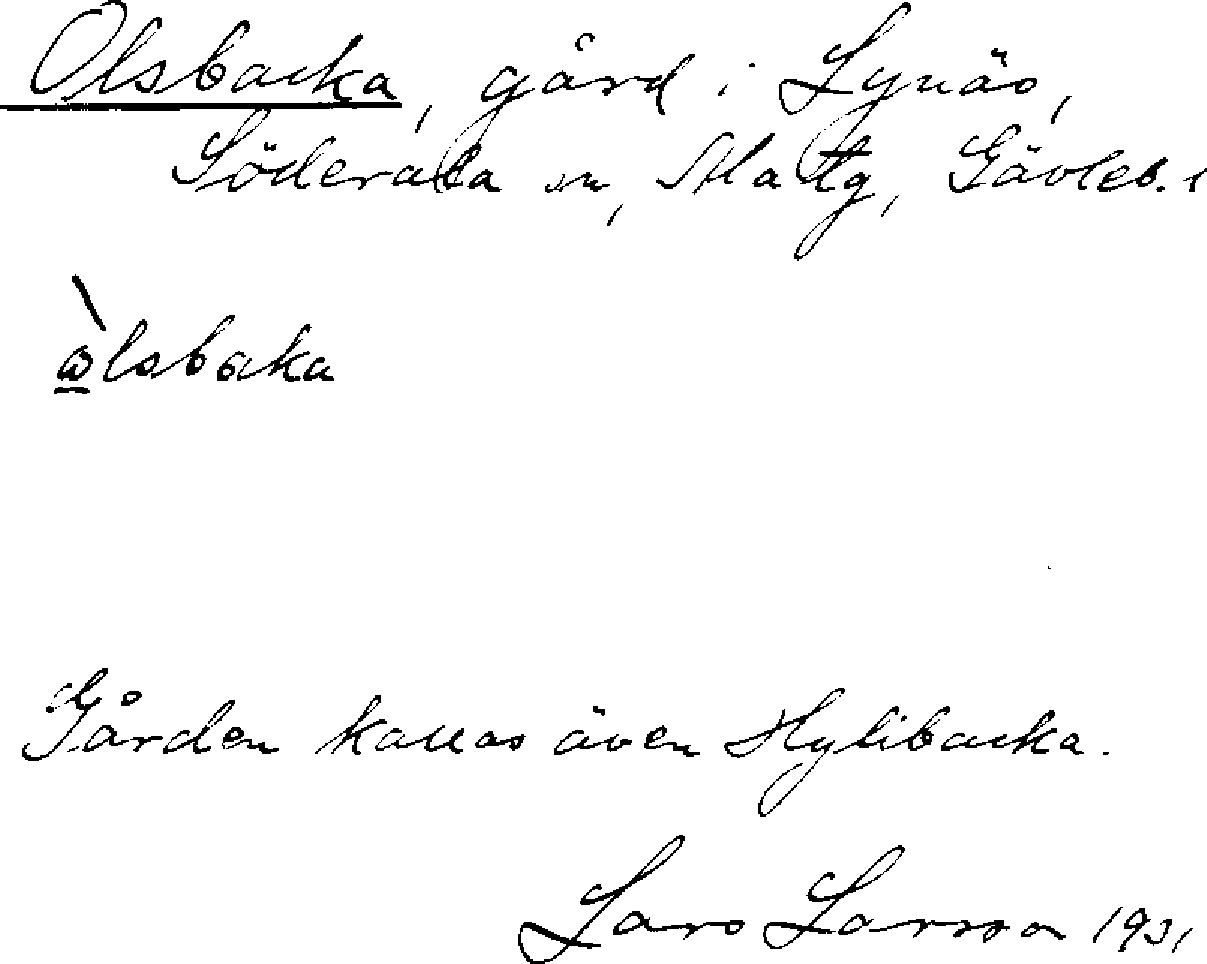 Olsbacka, gård i Lynäs,
Söderala sn, Ala tg, Gävleb. l
òlsbaka
Gården kallas även Hylibacka.
Lars Larsson 1931